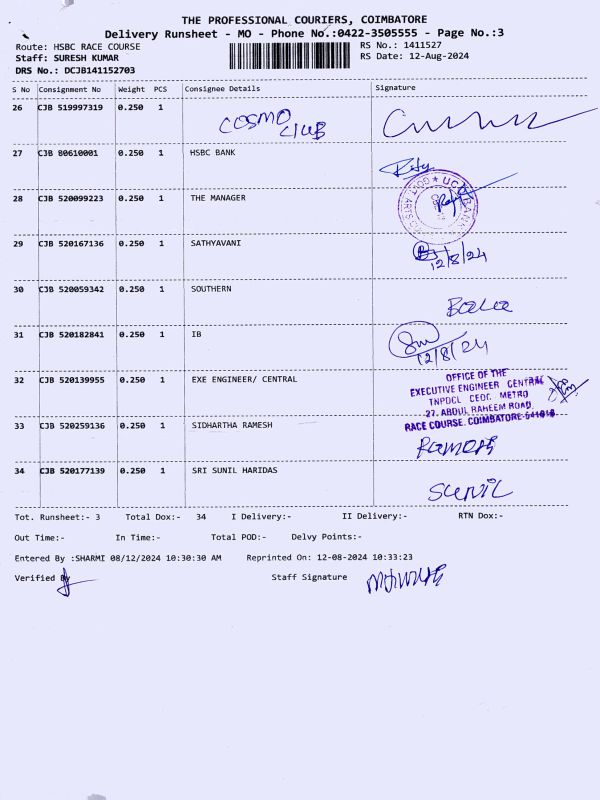 THE PROFESSIONAL COURIERS, COIMBATORE
Delivery Runsheet - MO - Phone No.:0422-3505555 - Page No.:3
Route: HSBC RACE COURSE RS No.: 1411527
Staff: SURESH KUMAR RS Date: 12-Aug-2024
DRS No.: DCJB141152703
S No Consignment No Weight PCS Consignee Details Signature
26 CJB 519997319 0.250 1 COSMO CLUB
27 CJB 80610001 0.250 1 HSBC BANK
28 CJB 520099223 0.250 1 THE MANAGER
29 CJB 520167136 0.250 1 SATHYAVANI 12/8/24
30 CJB 520059342 0.250 1 SOUTHERN
31 CJB 520182841 0.250 1 IB 12/8/24
32 CJB 520139955 0.250 1 EXE ENGINEER/ CENTRAL
OFFICE OF THE
EXECUTIVE ENGINEER CENTRAL
TNPDCL CEDC. METRO
27. ABDUL RAHEEM ROAD,
RACE COURSE. COIMBATORE-641018
33 CJB 520259136 0.250 1 SIDHARTHA RAMESH Ramesh
34 CJB 520177139 0.250 1 SRI SUNIL HARIDAS Sunil
Tot. Runsheet:- 3 Total Dox:- 34 I Delivery:- II Delivery:- RTN Dox:-
Out Time:- In Time:- Total POD:- Delvy Points:-
Entered By :SHARMI 08/12/2024 10:30:30 AM Reprinted On: 12-08-2024 10:33:23
Verified By Staff Signature